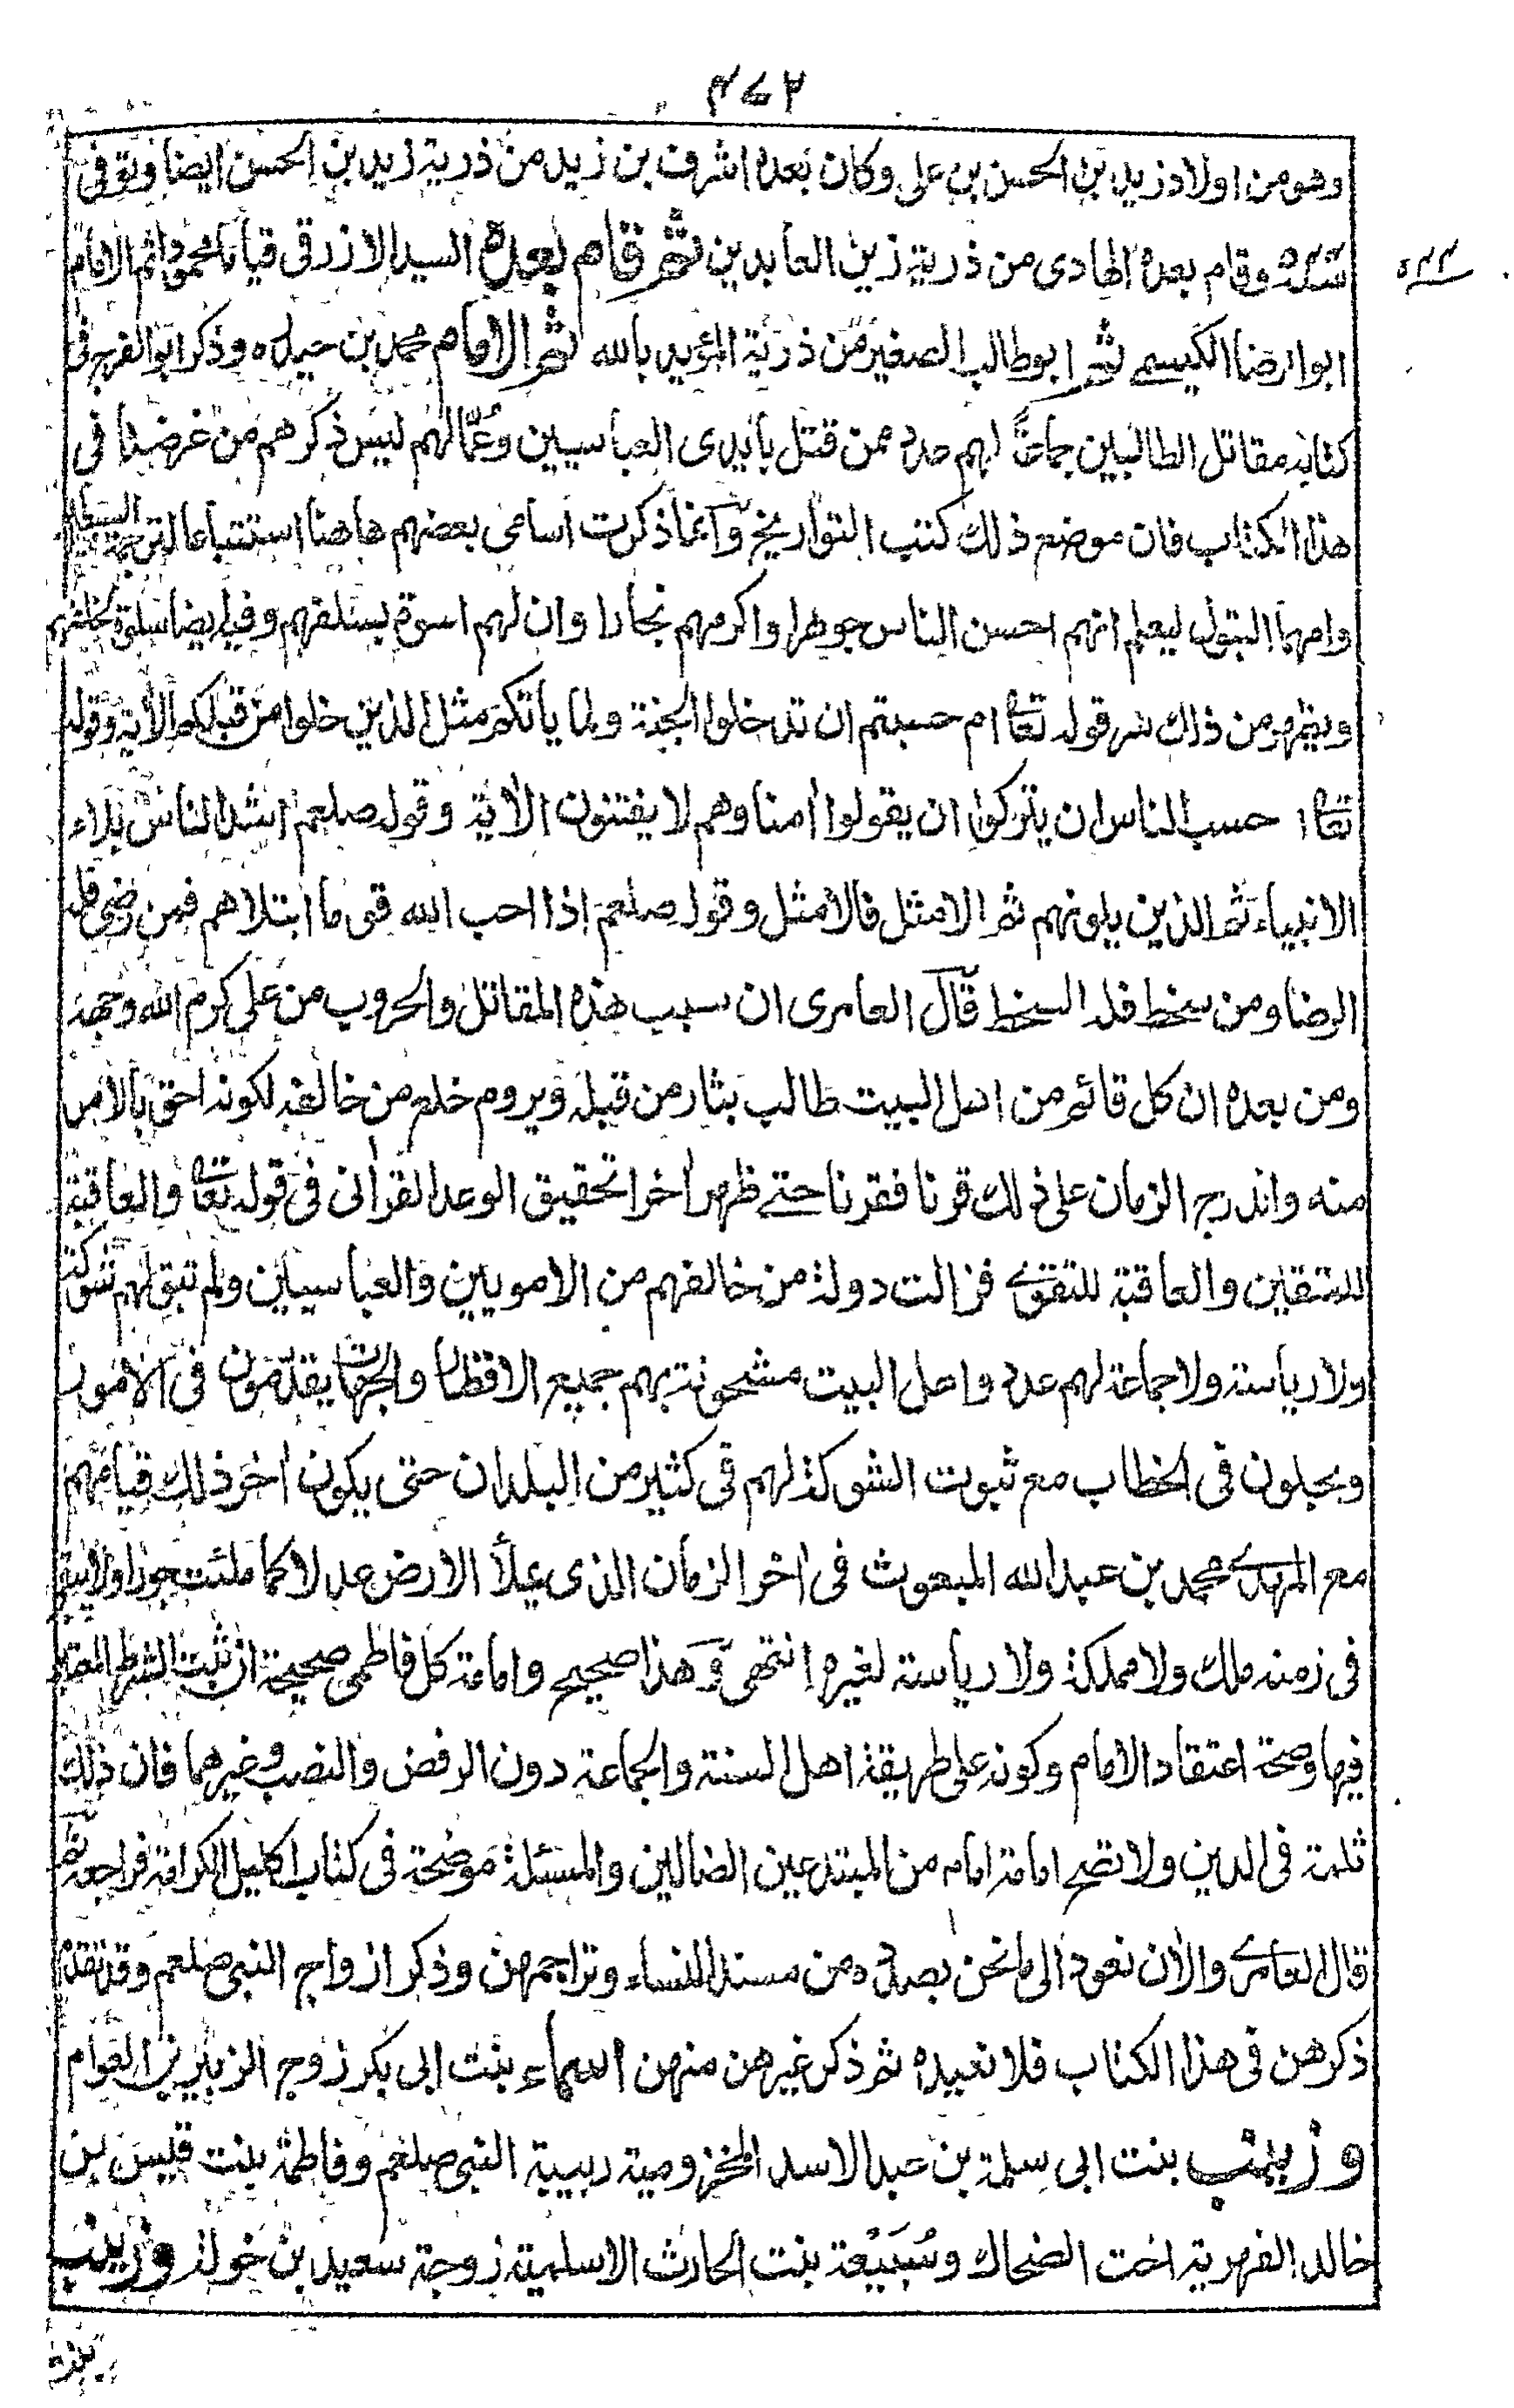 ٤٧٢
وهو من اولاد زيد بن الحسن بن علي وكان بعده اشرف بن زيد من ذرية زيد بن الحسن ايضا وتوفى
سنة وقام بعده الهادى من ذرية زين العابدين ثم قام بعده السيد الازرقى قياما محمودا ثم الامام
ابو الرضا الكيسمى ثم ابو طالب الصغير من ذرية المؤيد بالله ثم الامام محمد بن حيدره وذكر ابو الفرج فى
كتابه مقاتل الطالبين جماعة لهم عدد ممن قتل بايدى العباسيين وعمالهم ليس ذكرهم من غرضنا فى
هذا الكتاب فان موضع ذلك كتب التواريخ وانما ذكرت اسامى بعضهم هاهنا استتباعا لترجمة السبطين
وامهما البتول ليعلم انهم احسن الناس جوهرا واكرمهم نجارا وان لهم اسوة بسلفهم وفيه ايضا سلوة لخلفهم
ويظهر من ذلك سر قوله تعا ام حسبتم ان تدخلوا الجنة ولما ياتكم مثل الذين خلوا من قبلكم الأية وقوله
تعا ا حسب الناس ان يتركوا ان يقولوا أمنا وهم لا يفتنون الأية وقوله صلعم اشد الناس بلاء
الانبياء ثم الذين يلونهم ثم الامثل فالامثل وقوله صلعم اذا احب الله قوما ابتلاهم فمن رضى فله
الرضا ومن سخط فله السخط قال العامرى ان سبب هذه المقاتل والحروب من على كرم الله وجهه
ومن بعده ان كل قائم من اهل البيت طالب بثار من قبله ويروم خلع من خالفه لكونه احق بالامر
منه واندرج الزمان على ذلك قرنا فقرنا حتى ظهر اخرا تحقيق الوعد القرانى فى قوله تعا والعاقبة
للمتقين والعاقبة للتقوى فزالت دولة من خالفهم من الامويين والعباسيين ولم تبق لهم شوكة
ولا رياسة ولا جماعة لهم عدد واهل البيت مشحونة بهم جميع الاقطار والجهات يقدمون فى الامور
ويجلون فى الخطاب مع ثبوت الشوكة لهم فى كثير من البلدان حتى يكون اخر ذلك قيامهم
مع المهدى محمد بن عبد الله المبعوث فى اخر الزمان الذى يملأ الارض عدلا كما ملئت جورا ولا يبقى
فى زمنه ملك ولا مملكة ولا رياسة لغيره انتهى وهذا صحيح وامامة كل فاطمى صحيحة ان ثبت الشرط المعتبر
فيها وصحة اعتقاد الامام وكونه على طريقة اهل السنة والجماعة دون الرفض والنصب وغيرهما فان ذلك
ثلمة فى الدين ولا تصح امامة امام من المبتدعين الضالين والمسئلة موضحة فى كتاب اكليل الكرامة فراجعه ثم
قال العامرى والأن نعود الى ما نحن بصدده من مسند النساء وتراجمهن وذكر ازواج النبى صلعم وقد تقدم
ذكرهن فى هذا الكتاب فلا نعيده ثم ذكر غيرهن منهن اسماء بنت ابى بكر زوج الزبير بن العوام
وزينب بنت ابى سلمة بن عبد الاسد المخزومية ربيبة النبى صلعم وفاطمة بنت قيس بن
خالد الفهرية اخت الضحاك وسُبَيْعة بنت الحارث الاسلمية زوجة سعيد بن خولة وزينب
بنت